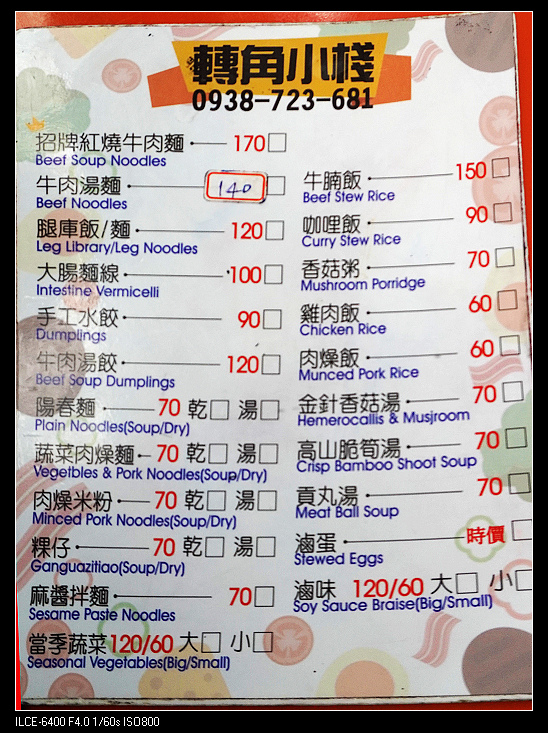 轉角小棧
0938-723-681
招牌紅燒牛肉麵 170
Beef Soup Noodles
牛肉湯麵 140
Beef Noodles
腿庫飯/麵 120
Leg Library/Leg Noodles
大腸麵線 100
Intestine Vermicelli
手工水餃 90
Dumplings
牛肉湯餃 120
Beef Soup Dumplings
陽春麵 70 乾 湯
Plain Noodles(Soup/Dry)
蔬菜肉燥麵 70 乾 湯
Vegetbles & Pork Noodles(Soup/Dry)
肉燥米粉 70 乾 湯
Minced Pork Noodles(Soup/Dry)
粿仔 70 乾 湯
Ganguazitiao(Soup/Dry)
麻醬拌麵 70
Sesame Paste Noodles
當季蔬菜 120/60 大 小
Seasonal Vegetables(Big/Small)
牛腩飯 150
Beef Stew Rice
咖哩飯 90
Curry Stew Rice
香菇粥 70
Mushroom Porridge
雞肉飯 60
Chicken Rice
肉燥飯 60
Munced Pork Rice
金針香菇湯 70
Hemerocallis & Musjroom
高山脆筍湯 70
Crisp Bamboo Shoot Soup
貢丸湯 70
Meat Ball Soup
滷蛋 時價
Stewed Eggs
滷味 120/60 大 小
Soy Sauce Braise(Big/Small)
ILCE-6400 F4.0 1/60s ISO800